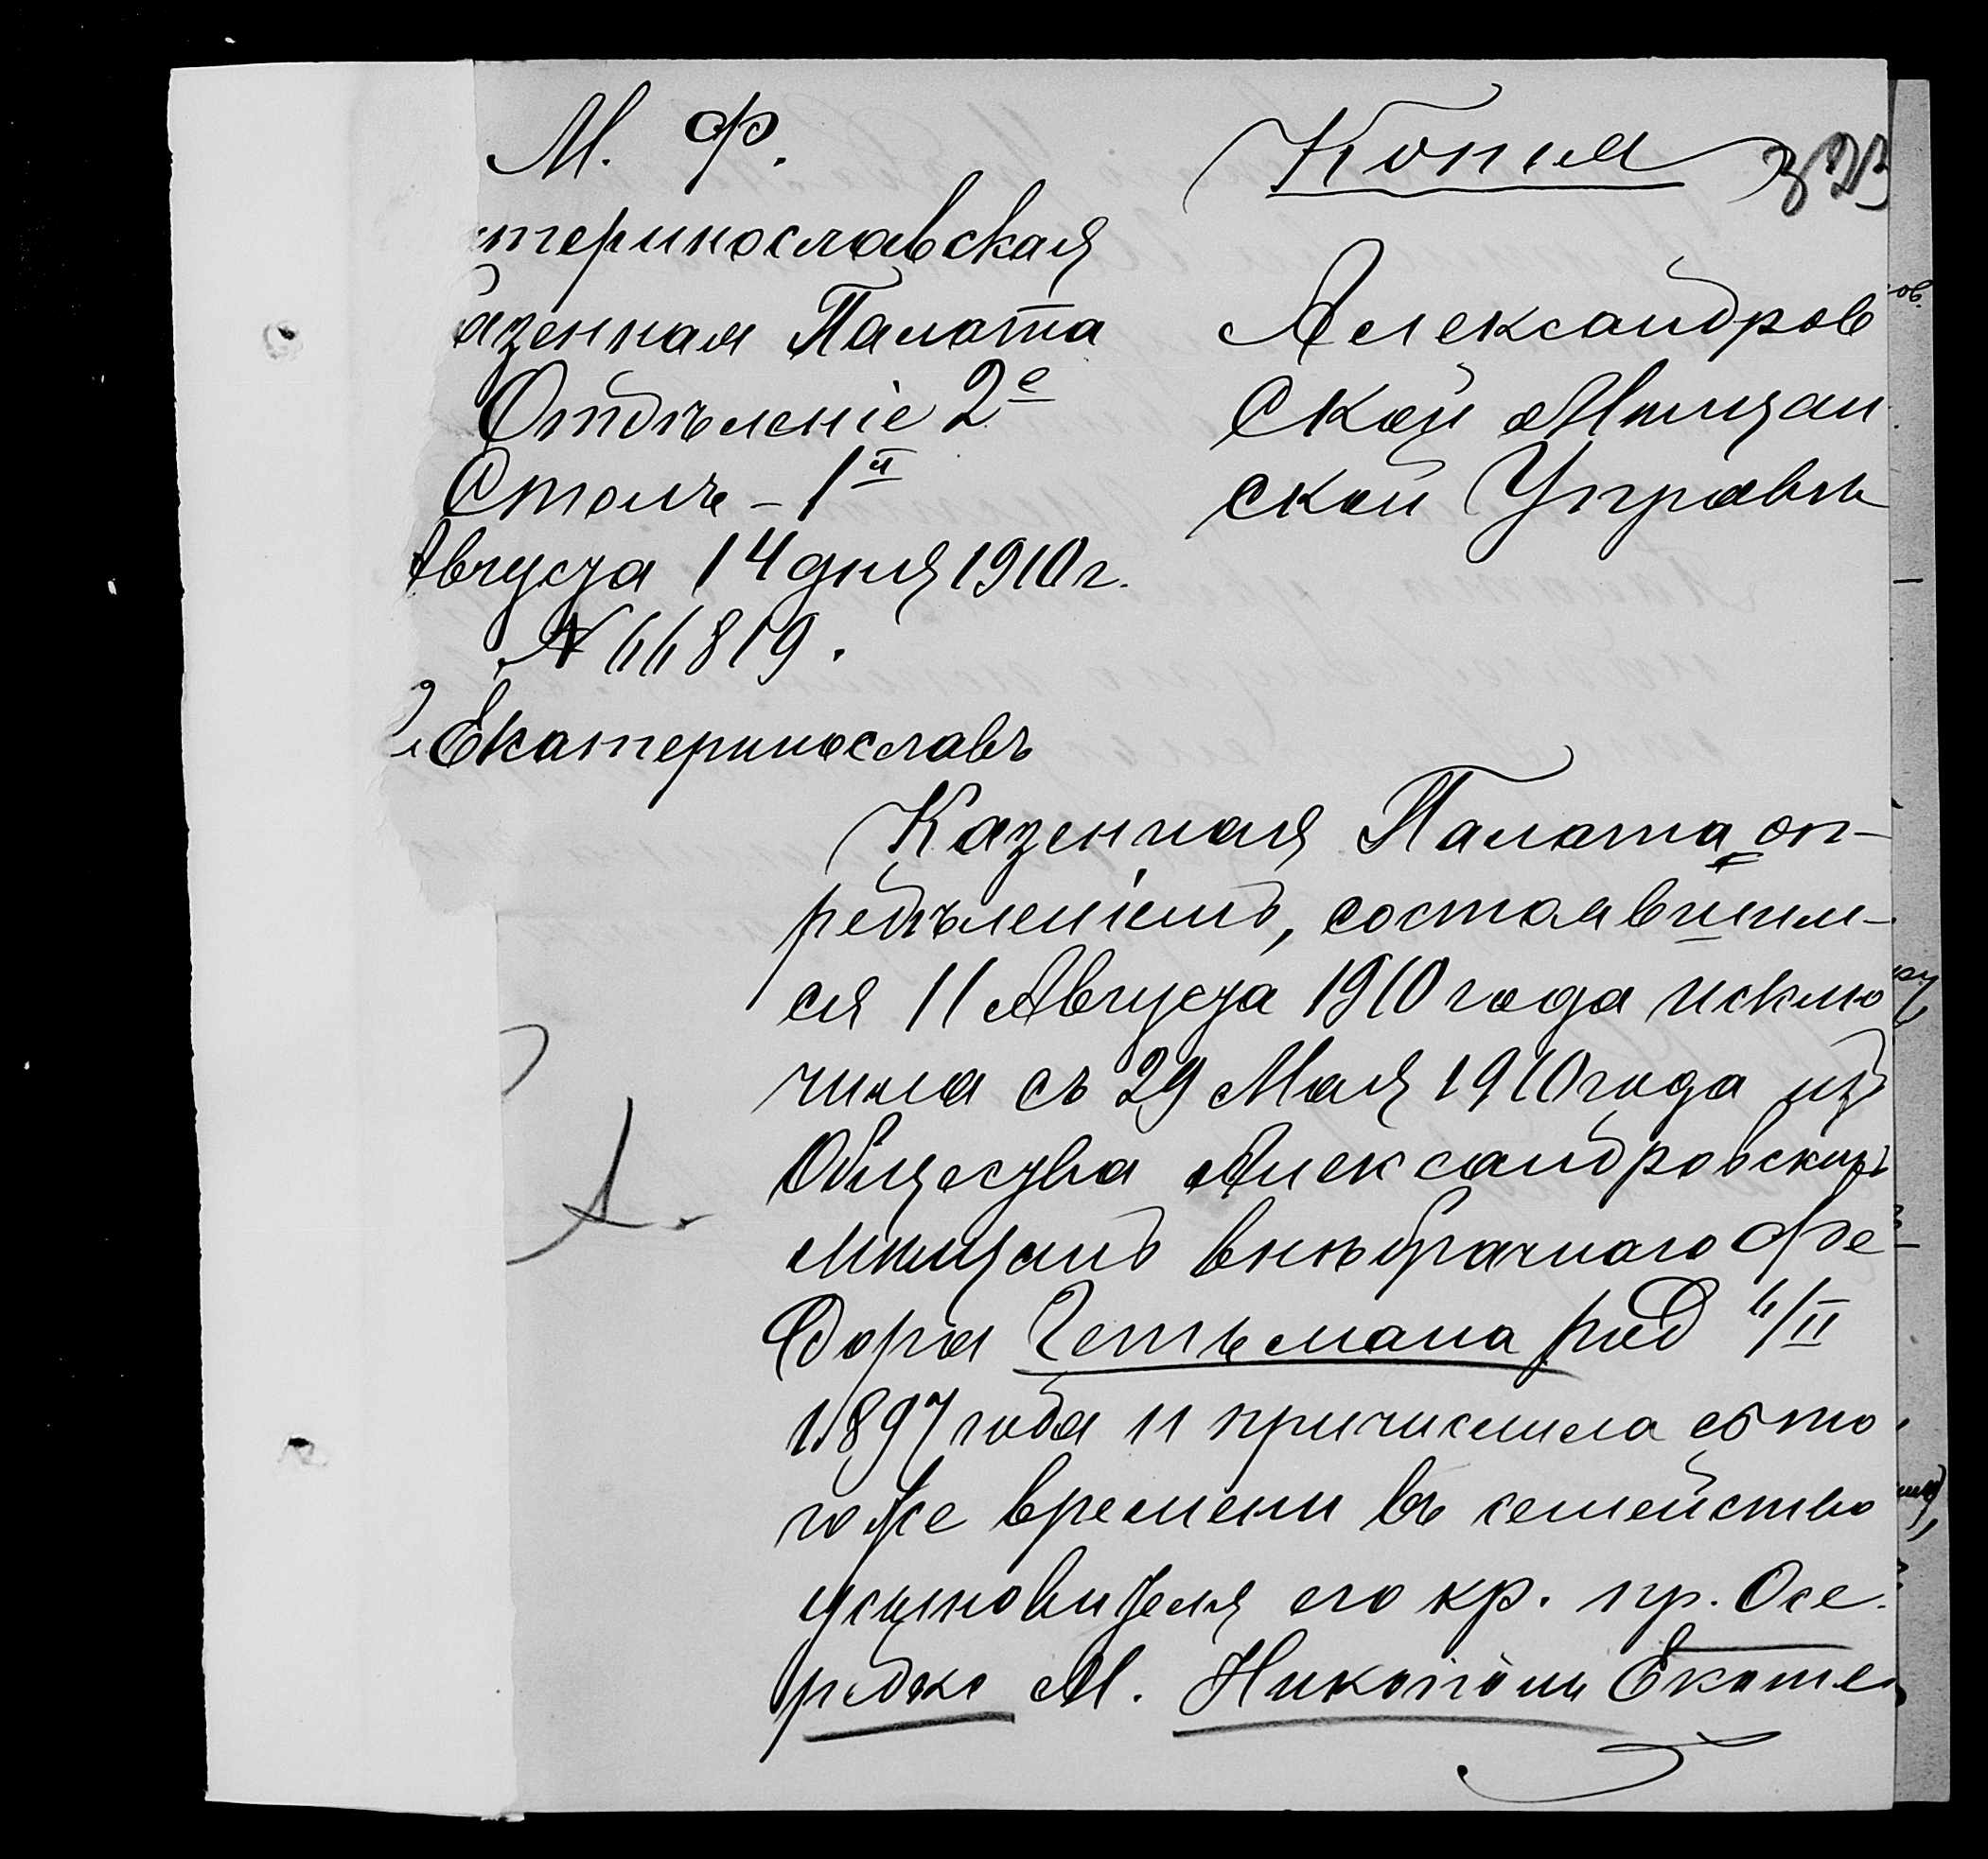 М. Ф.
теринославская
азенная Палата
Отдѣленіе 2е
Столъ – 1й
Августа 14 дня 1910 г.
№ 66819.
г. Екатеринославъ
Копия
Александров
ской Мѣщан
ской Управѣ
Казенная Палата оп-
редѣленіемъ, состоявшим-
ся 11 Августа 1910 года исклю
чила съ 29 Мая 1910 года изъ
Общества Александровскихъ
мѣщанъ внѣбрачнаго Фе-
дора Гетьмана род 6/II
1897 года и причислила съ то
го же времени въ семейство
усыновителя его кр. пр.
М. Никополи Екате